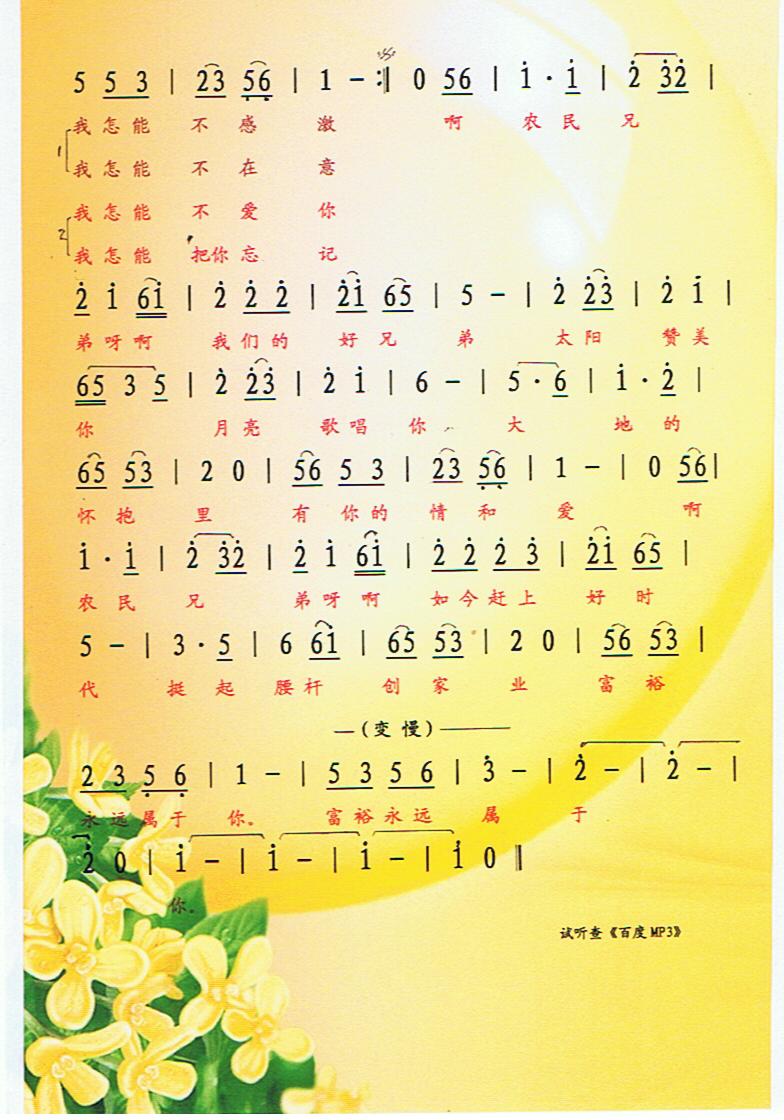 5 5 3 | 2 3 5̣ 6̣ | 1 - :‖ 0 5 6 | i · i | 2̇ 3̇ 2̇ |
我 怎 能 不 感 激 啊 农 民 兄
1
我 怎 能 不 在 意
我 怎 能 不 爱 你
2
我 怎 能 把你 忘 记
2̇ i 6 i | 2̇ 2̇ 2̇ | 2̇ i 6 5 | 5 - | 2̇ 2̇ 3̇ | 2̇ i |
弟 呀 啊 我 们 的 好 兄 弟 太 阳 赞 美
6 5 3 5 | 2̇ 2̇ 3̇ | 2̇ i | 6 - | 5 · 6 | i · 2̇ |
你 月 亮 歌 唱 你 大 地 的
6 5 5 3 | 2 0 | 5 6 5 3 | 2 3 5̣ 6̣ | 1 - | 0 5 6 |
怀 抱 里 有 你 的 情 和 爱 啊
i · i | 2̇ 3̇ 2̇ | 2̇ i 6 i | 2̇ 2̇ 2̇ 3̇ | 2̇ i 6 5 |
农 民 兄 弟 呀 啊 如 今 赶 上 好 时
5 - | 3 · 5 | 6 6 i | 6 5 5 3 | 2 0 | 5 6 5 3 |
代 挺 起 腰 杆 创 家 业 富 裕
—(变 慢)———
2 3 5̣ 6̣ | 1 - | 5 3 5 6 | 3̇ - | 2̇ - | 2̇ - |
永 远 属 于 你。 富 裕 永 远 属 于
2̇ 0 | i - | i - | i - | i 0 ‖
你。
试听查《百度 MP3》